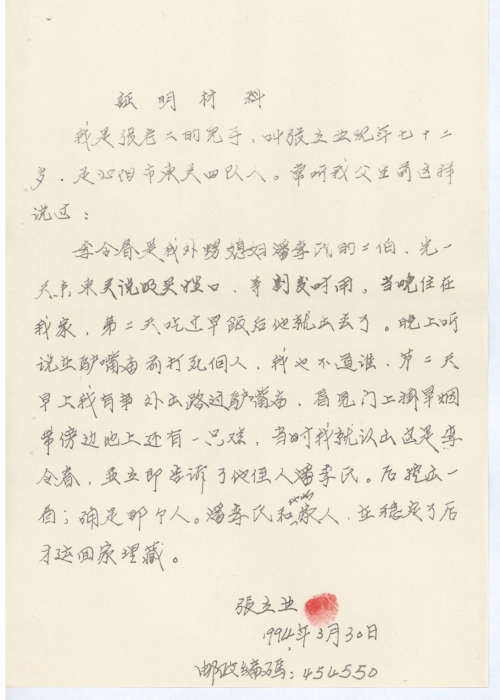 証明材料
我是张老二的儿子,叫张立业现年七十二
岁,是沁阳市东关四队人。常听我父生前这样
说过:
李令春是我外甥媳妇潘李氏的二伯,先一
天来东关说的买牲口,等到发时用。当晚住在
我家,第二天吃过早饭后他就出去了。晚上听
说在驴嘴庙前打死个人,我也不道谁,第二天
早上我有事外出路过驴嘴庙,看见门上掛旱烟
带傍边地上还有一只鞋,当时我就认出这是李
令春,并立即告诉了他侄人潘李氏。后挖出一
看;确是那个人。潘李氏和他的家人,在稳定了后
才运回家埋藏。
張立业
1994年3月30日
邮政编码:454550